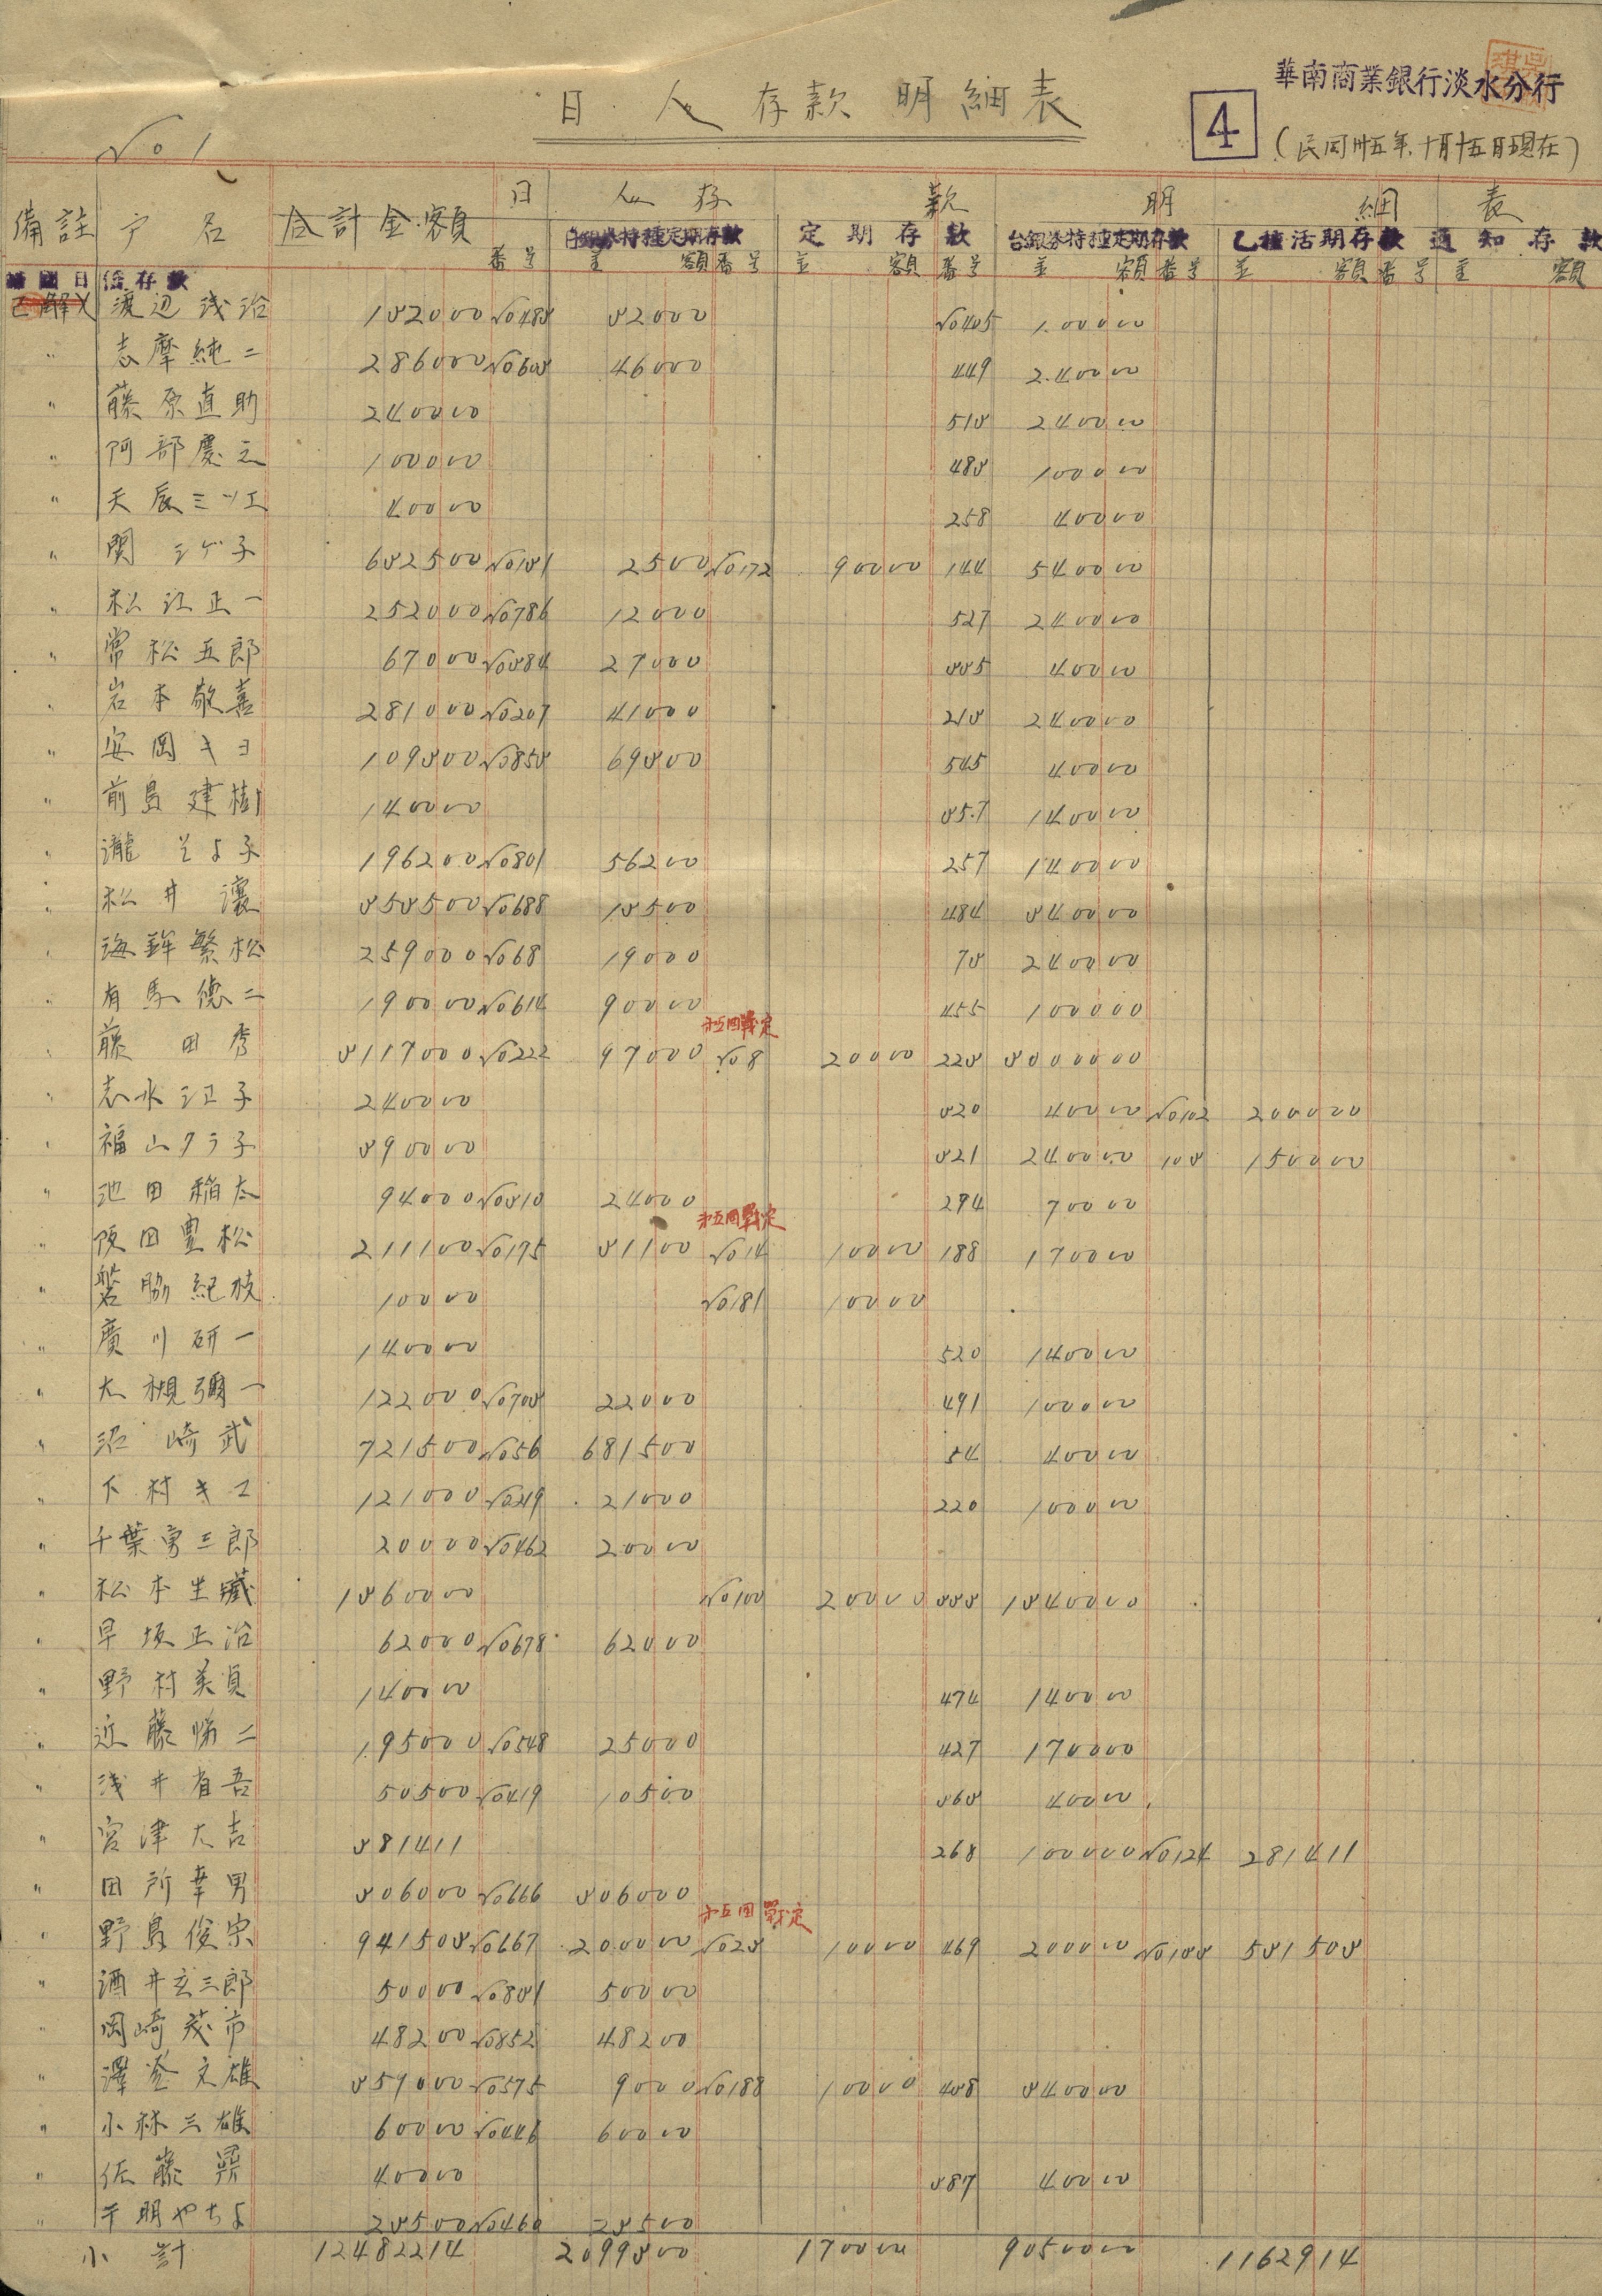 華南商業銀行淡水分行
日人存款明細表
4
(民国卅五年、十月十五日現在)
No 1
日 人 存 款 明 細 表
備註 户名 合計金額 台銀券特種定期存款 定期存款 台銀券特種定期存款 乙種活期存款 通知存款
番号 金額 番号 金額 番号 金額 番号 金額 番号 金額
歸國日僑存款
已解 渡辺浅治 132000 No483 32000 No405 100000
〃 志摩純二 286000 No603 46000 449 240000
〃 藤原直助 240000 513 240000
〃 阿部慶之 100000 483 100000
〃 天辰ミツエ 40000 258 40000
〃 関シゲ子 632500 No131 2500 No172 90000 144 540000
〃 松江正一 252000 No786 12000 527 240000
〃 常松五郎 67000 No384 27000 335 40000
〃 岩本敬喜 281000 No207 41000 213 240000
〃 安岡キヨ 109300 No853 69300 545 40000
〃 前島建樹 140000 357 140000
〃 瀧そよ子 196200 No801 56200 257 140000
〃 松井瀼 353500 No688 13500 484 340000
〃 海鉾繁松 259000 No68 19000 73 240000
〃 有馬徳二 190000 No614 90000 455 100000
オ五回戰定
〃 藤田秀 3117000 No222 97000 No8 20000 223 3000000
〃 志水シヱ子 240000 320 40000 No102 200000
〃 福山クラ子 390000 321 240000 103 150000
〃 池田稲太 94000 No310 24000 294 70000
オ五回戰定
〃 阪田豊松 211100 No175 31100 No14 10000 188 170000
〃 磐脇紀枝 10000 No181 10000
〃 廣川研一 140000 520 140000
〃 大槻彌一 122000 No703 22000 491 100000
〃 沼崎武 721500 No56 681500 54 40000
〃 下村キヱ 121000 No219 21000 220 100000
〃 千葉勇三郎 20000 No462 20000
〃 松本生蔵 1360000 No100 20000 333 1340000
〃 早坂正治 62000 No678 62000
〃 野村美貞 140000 474 140000
〃 近藤悌二 195000 No548 25000 427 170000
〃 浅井省吾 50500 No419 10500 363 40000
〃 宮津大吉 381411 268 100000 No124 281411
〃 田所幸男 306000 No666 306000
オ五回戰定
〃 野島俊宗 941503 No667 200000 No23 10000 469 200000 No133 531503
〃 酒井玄三郎 50000 No831 50000
〃 岡崎茂市 48200 No852 48200
〃 澤登文雄 359000 No575 9000 No188 10000 438 340000
〃 小林三雄 60000 No446 60000
〃 佐藤 40000 387 40000
〃 千明やちよ 23500 No460 23500
小計 12482214 2099300 170000 9050000 1162914